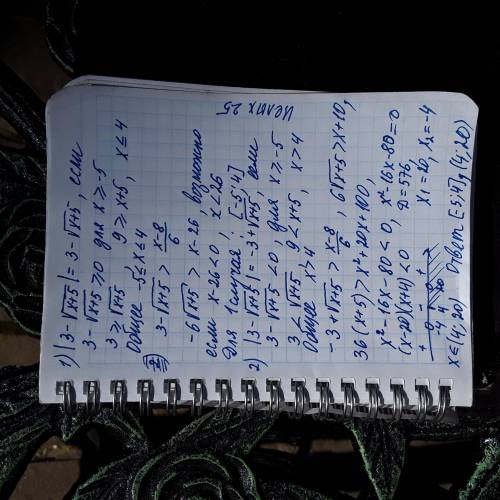 1) |3-√x+5| = 3-√x+5, если
3-√x+5 ≥ 0 для x ≥ -5
3 ≥ √x+5, 9 ≥ x+5, x ≤ 4
Общее -5 ≤ x ≤ 4
3-√x+5 > x-8/6
-6√x+5 > x-26, возможно
если x-26 < 0, x < 26
Для 1 случая: [-5; 4]
2) |3-√x+5| = -3+√x+5, если
3-√x+5 < 0, для x ≥ -5
3 < √x+5, 9 < x+5, x > 4
Общее x > 4
-3+√x+5 > x-8/6, 6√x+5 > x+10,
36(x+5) > x²+20x+100,
x²-16x-80 < 0, x²-16x-80=0
(x-20)(x+4) < 0, D=576,
x1=20, x2=-4
+ - +
-4 4 20
x∈(4; 20) Ответ [-5;4], (4; 20)
Целых 25